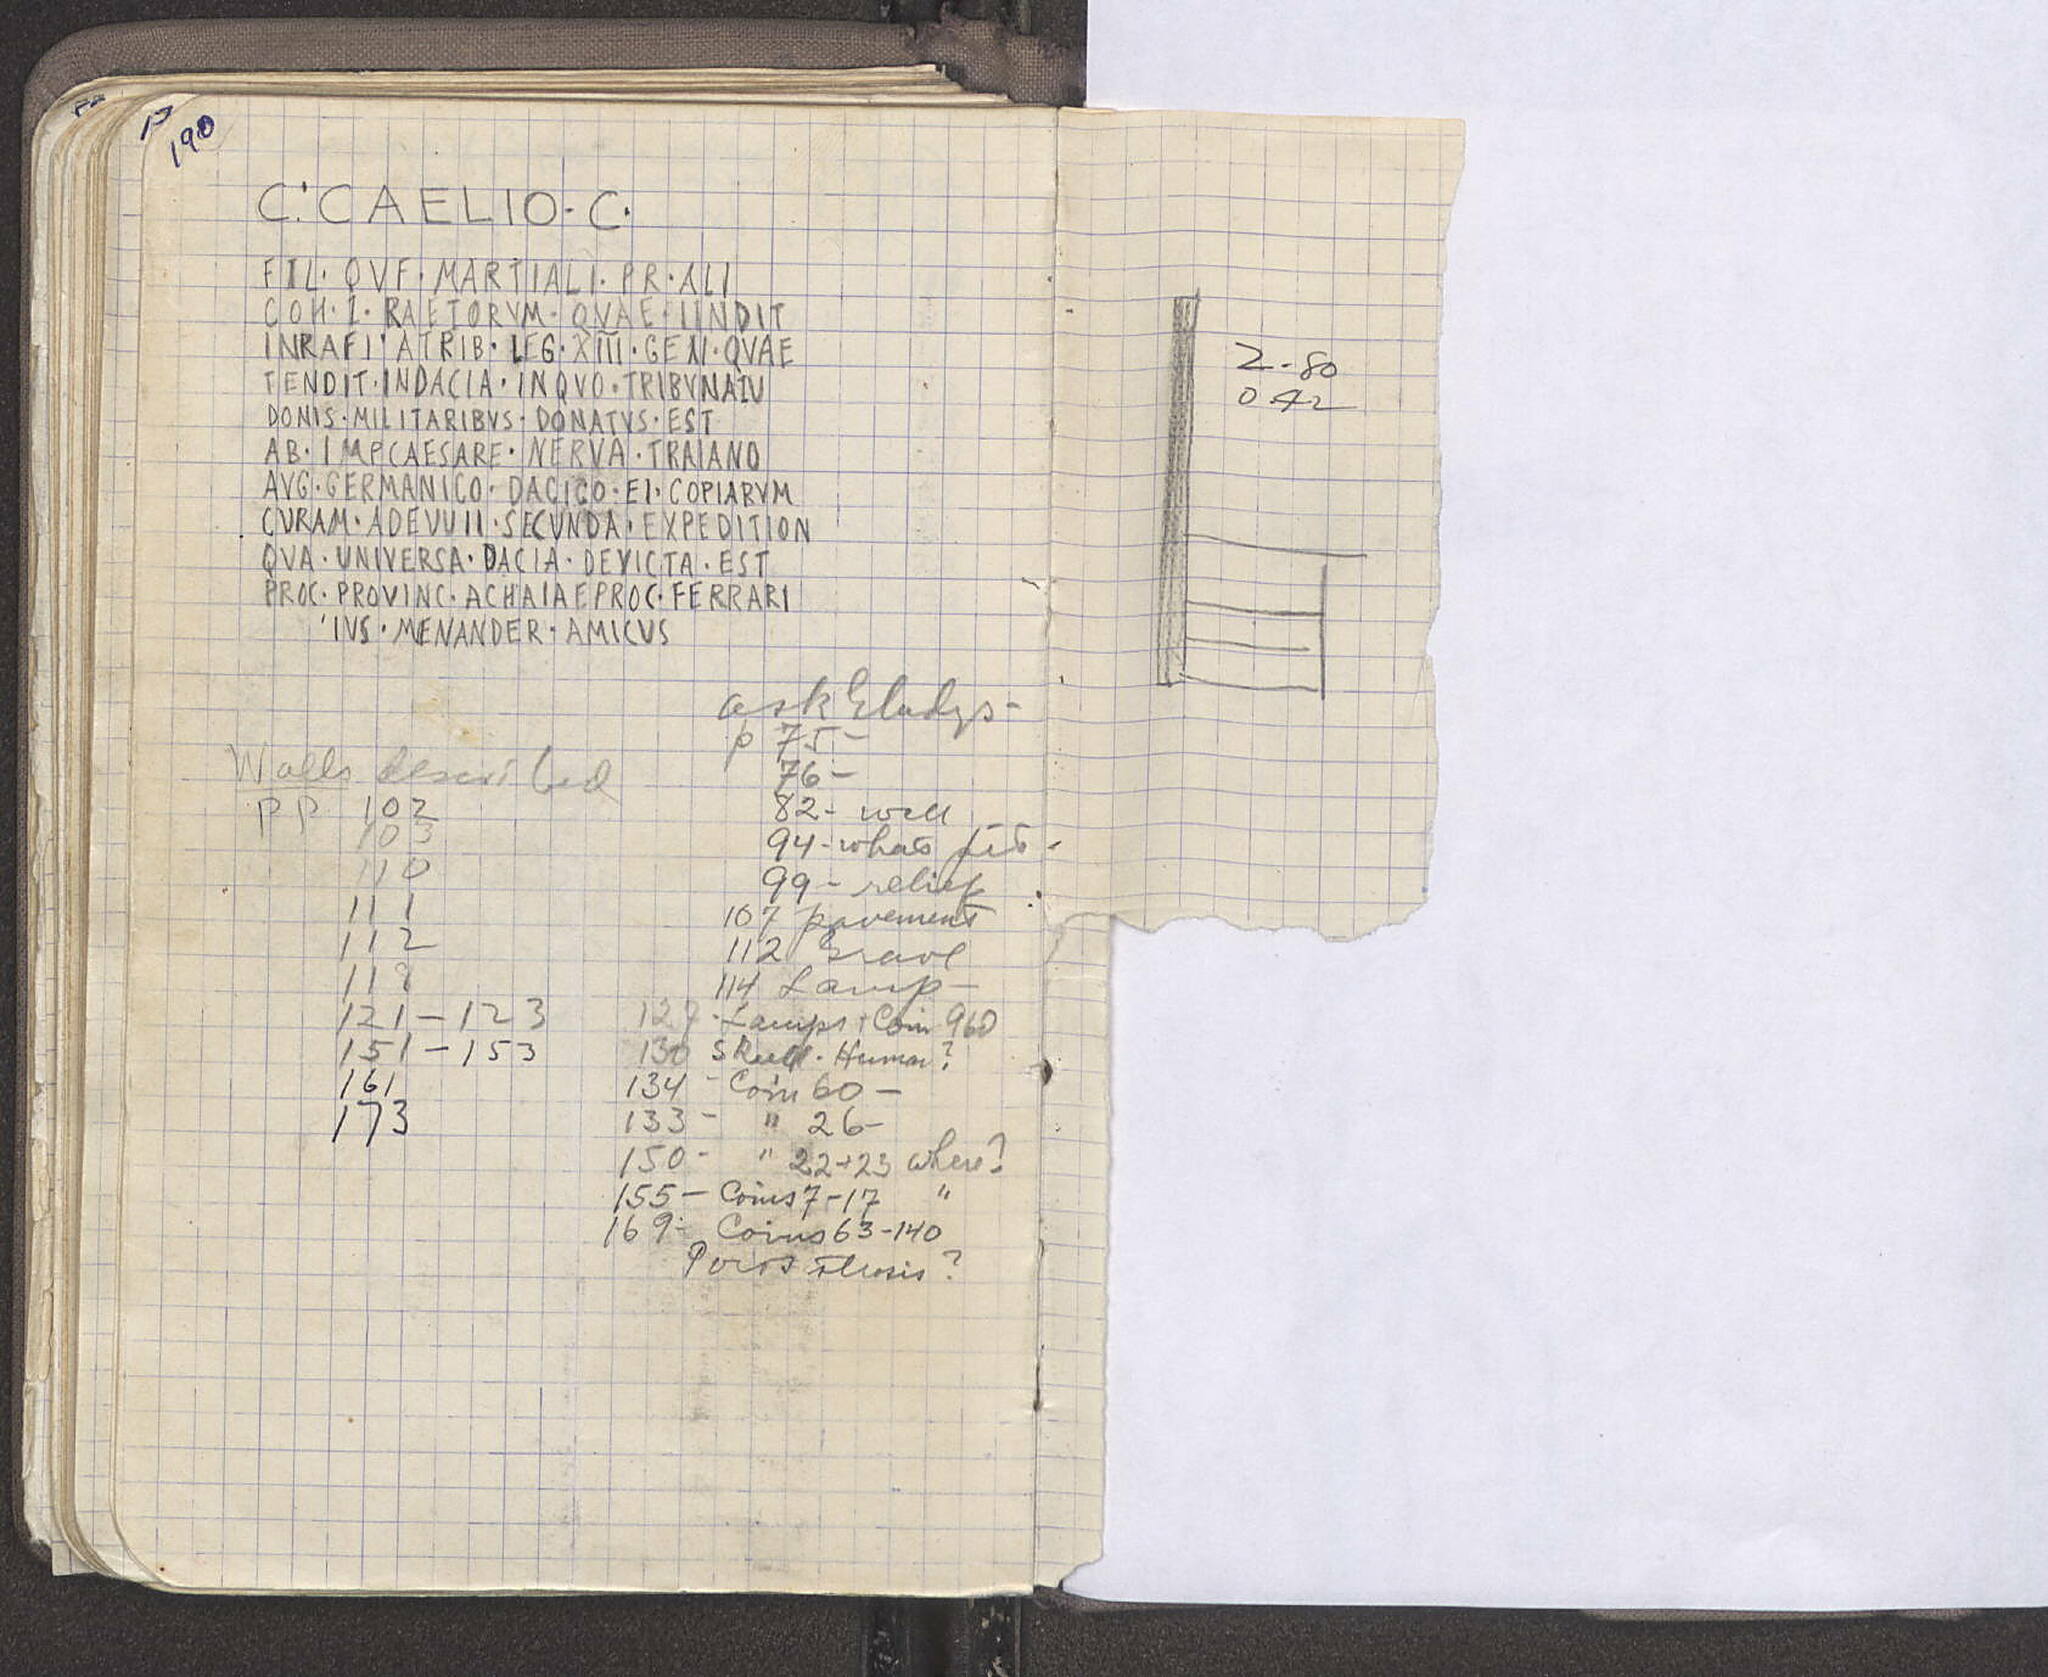 P
190
C·CAELIO·C·
FIL·QVF·MARTIALI·PR·ALI
COH·I·RAETORVM·QVAE·IINDIT
INRAFI·ATRIB·LEG·XIII·GEM·QVAE
TENDIT·INDACIA·INQVO·TRIBVNAIV
DONIS·MILITARIBVS·DONATVS·EST
AB·IMPCAESARE·NERVA·TRAIANO
AVG·GERMANICO·DACICO·EI·COPIARVM
CVRAM·ADEVUII·SECUNDA·EXPEDITION
QVA·UNIVERSA·DACIA·DEVICTA·EST
PROC·PROVINC·ACHAIAEPROC·FERRARI
'IVS·MENANDER·AMICUS
Walls described
pp 102
103
110
111
112
119
121-123
151-153
161
173
ask Gladys-
p 75-
76-
82- well
94- whats
99- relief
107 pavement
112 Grave
114 Lamp-
Lamps + Coin 960
130 Skull. Human?
134 - Coin 60 -
133 - " 26-
150 - " 22+23 where?
155 - Coins 7-17 "
169 - Coins 63-140
Poros
2-80
0.42